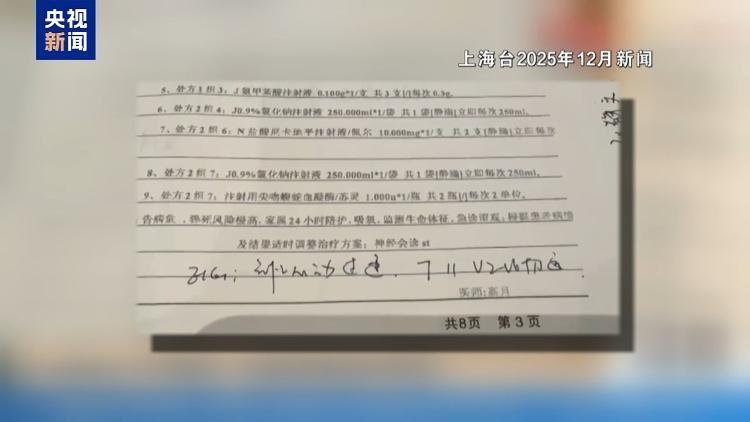 央视新闻
上海台2025年12月新闻
5、处方1组3：J氨甲苯酸注射液 0.100g*1/支 共3支[/]每次0.3g.
6、处方2组4：J0.9%氯化钠注射液 250.000ml*1/袋 共1袋[静滴]立即每次250ml.
7、处方2组6：N盐酸尼卡地平注射液/佩尔 10.000mg*1/支 共2支[静滴]立即每次
8、处方2组7：J0.9%氯化钠注射液 250.000ml*1/袋 共1袋[静滴]立即每次250ml.
9、处方2组7：注射用尖吻蝮蛇血凝酶/苏灵 1.000u*1/瓶 共2瓶[/]每次2单位.
告病危，猝死风险极高，家属24小时陪护，吸氧，监测生命体征，急诊留观；根据患者病情
及结果适时调整治疗方案；神经会诊st
医师：高月
共8页 第3页